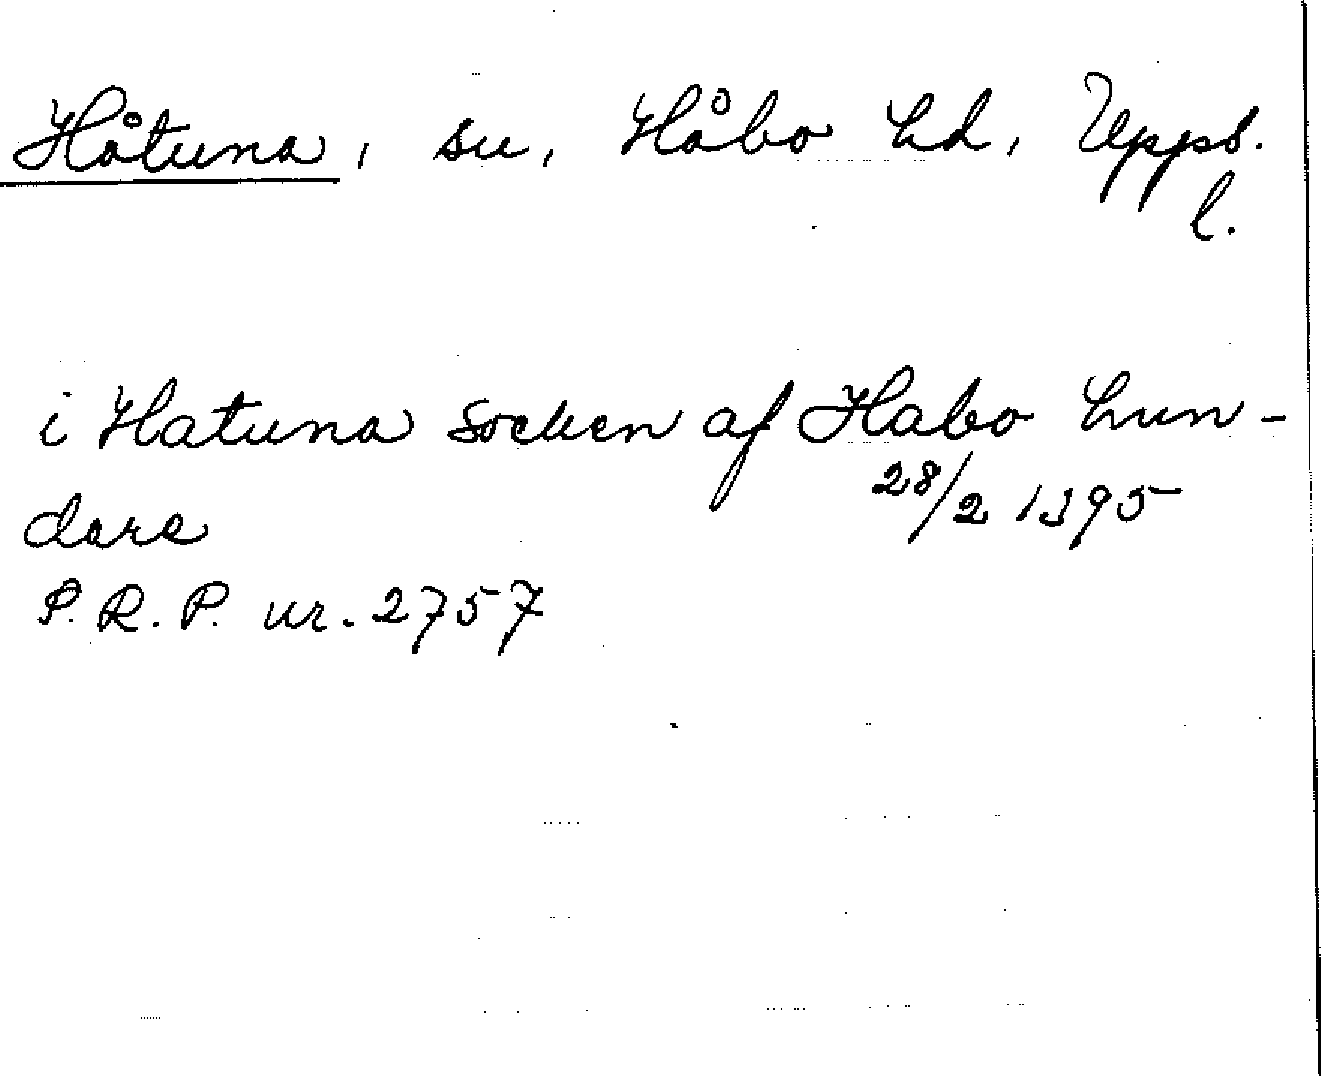 Håtuna, sn, Håbo hd, Upps.
l.
i Hatuna socken af Habo hun-
dare 28/2 1395
S.R.P. nr. 2757